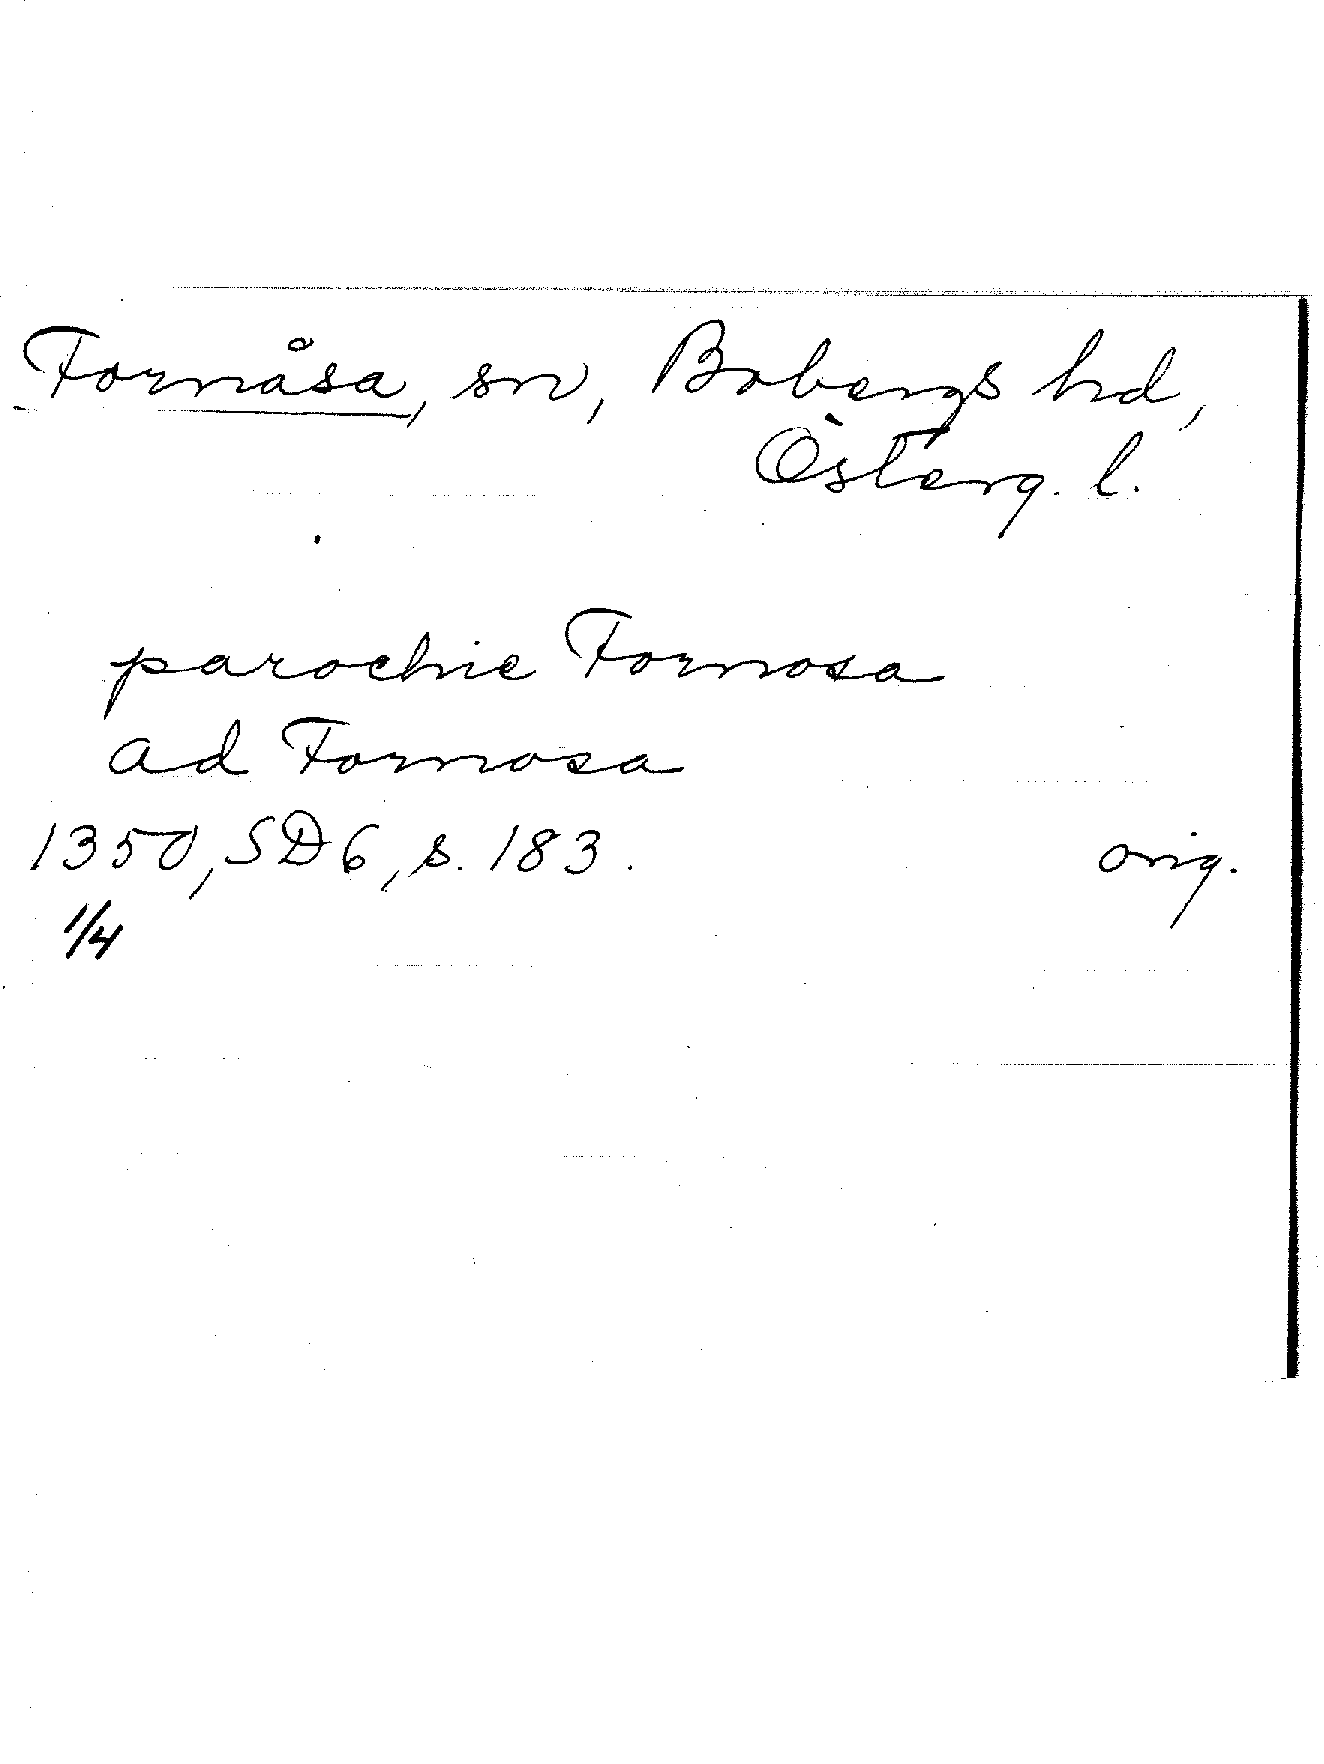 Fornåsa, sn, Bobergs hd,
Österg. l.
parochie Fornosa
ad Fornosa
1350, SD 6, s. 183. orig.
1/4